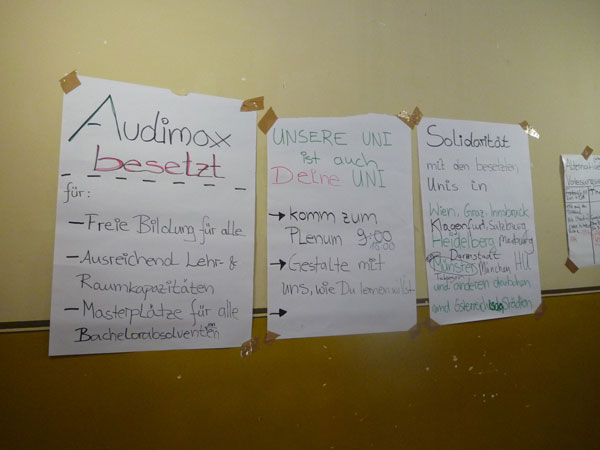 Audimax
besetzt
für:
– Freie Bildung für alle
– Ausreichend Lehr- &
Raumkapazitäten
– Masterplätze für alle
Bachelorabsolventen
UNSERE UNI
ist auch
Deine UNI
→ komm zum
Plenum 9:00
→ Gestalte mit
uns, wie Du lernen willst
→
Solidarität
mit den besetzten
Unis in
Wien, Graz, Innsbruck,
Klagenfurt, Salzburg,
Heidelberg, Marburg
Darmstadt
Münster, München HU
und anderen deutschen
und österreichischen Städten